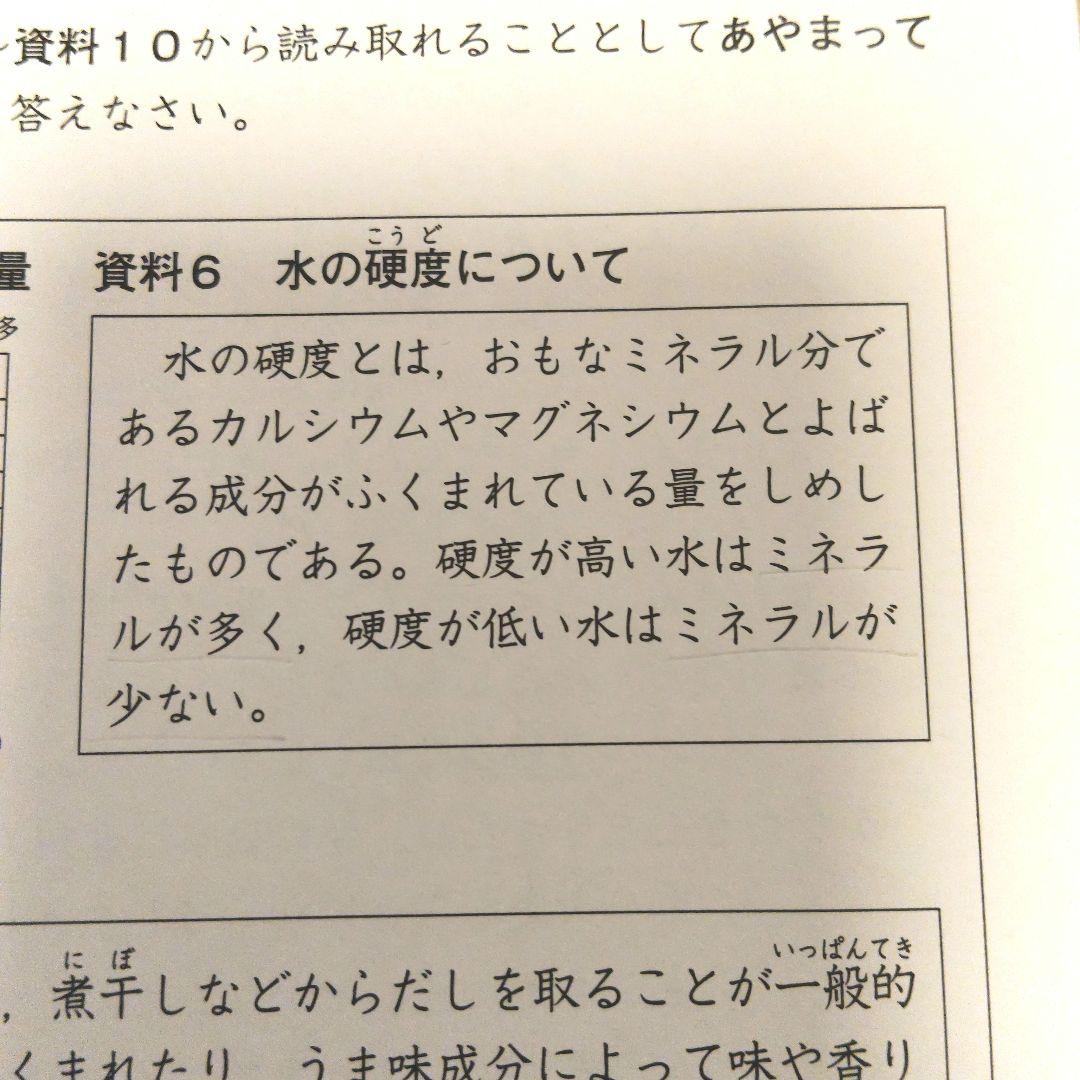 資料１０から読み取れることとしてあやまって
答えなさい。
量
資料６　水の硬度について
こうど
多
水の硬度とは，おもなミネラル分で
あるカルシウムやマグネシウムとよば
れる成分がふくまれている量をしめし
たものである。硬度が高い水はミネラ
ルが多く，硬度が低い水はミネラルが
少ない。
にぼ
いっぱんてき
，煮干しなどからだしを取ることが一般的
くまれたり，うま味成分によって味や香り